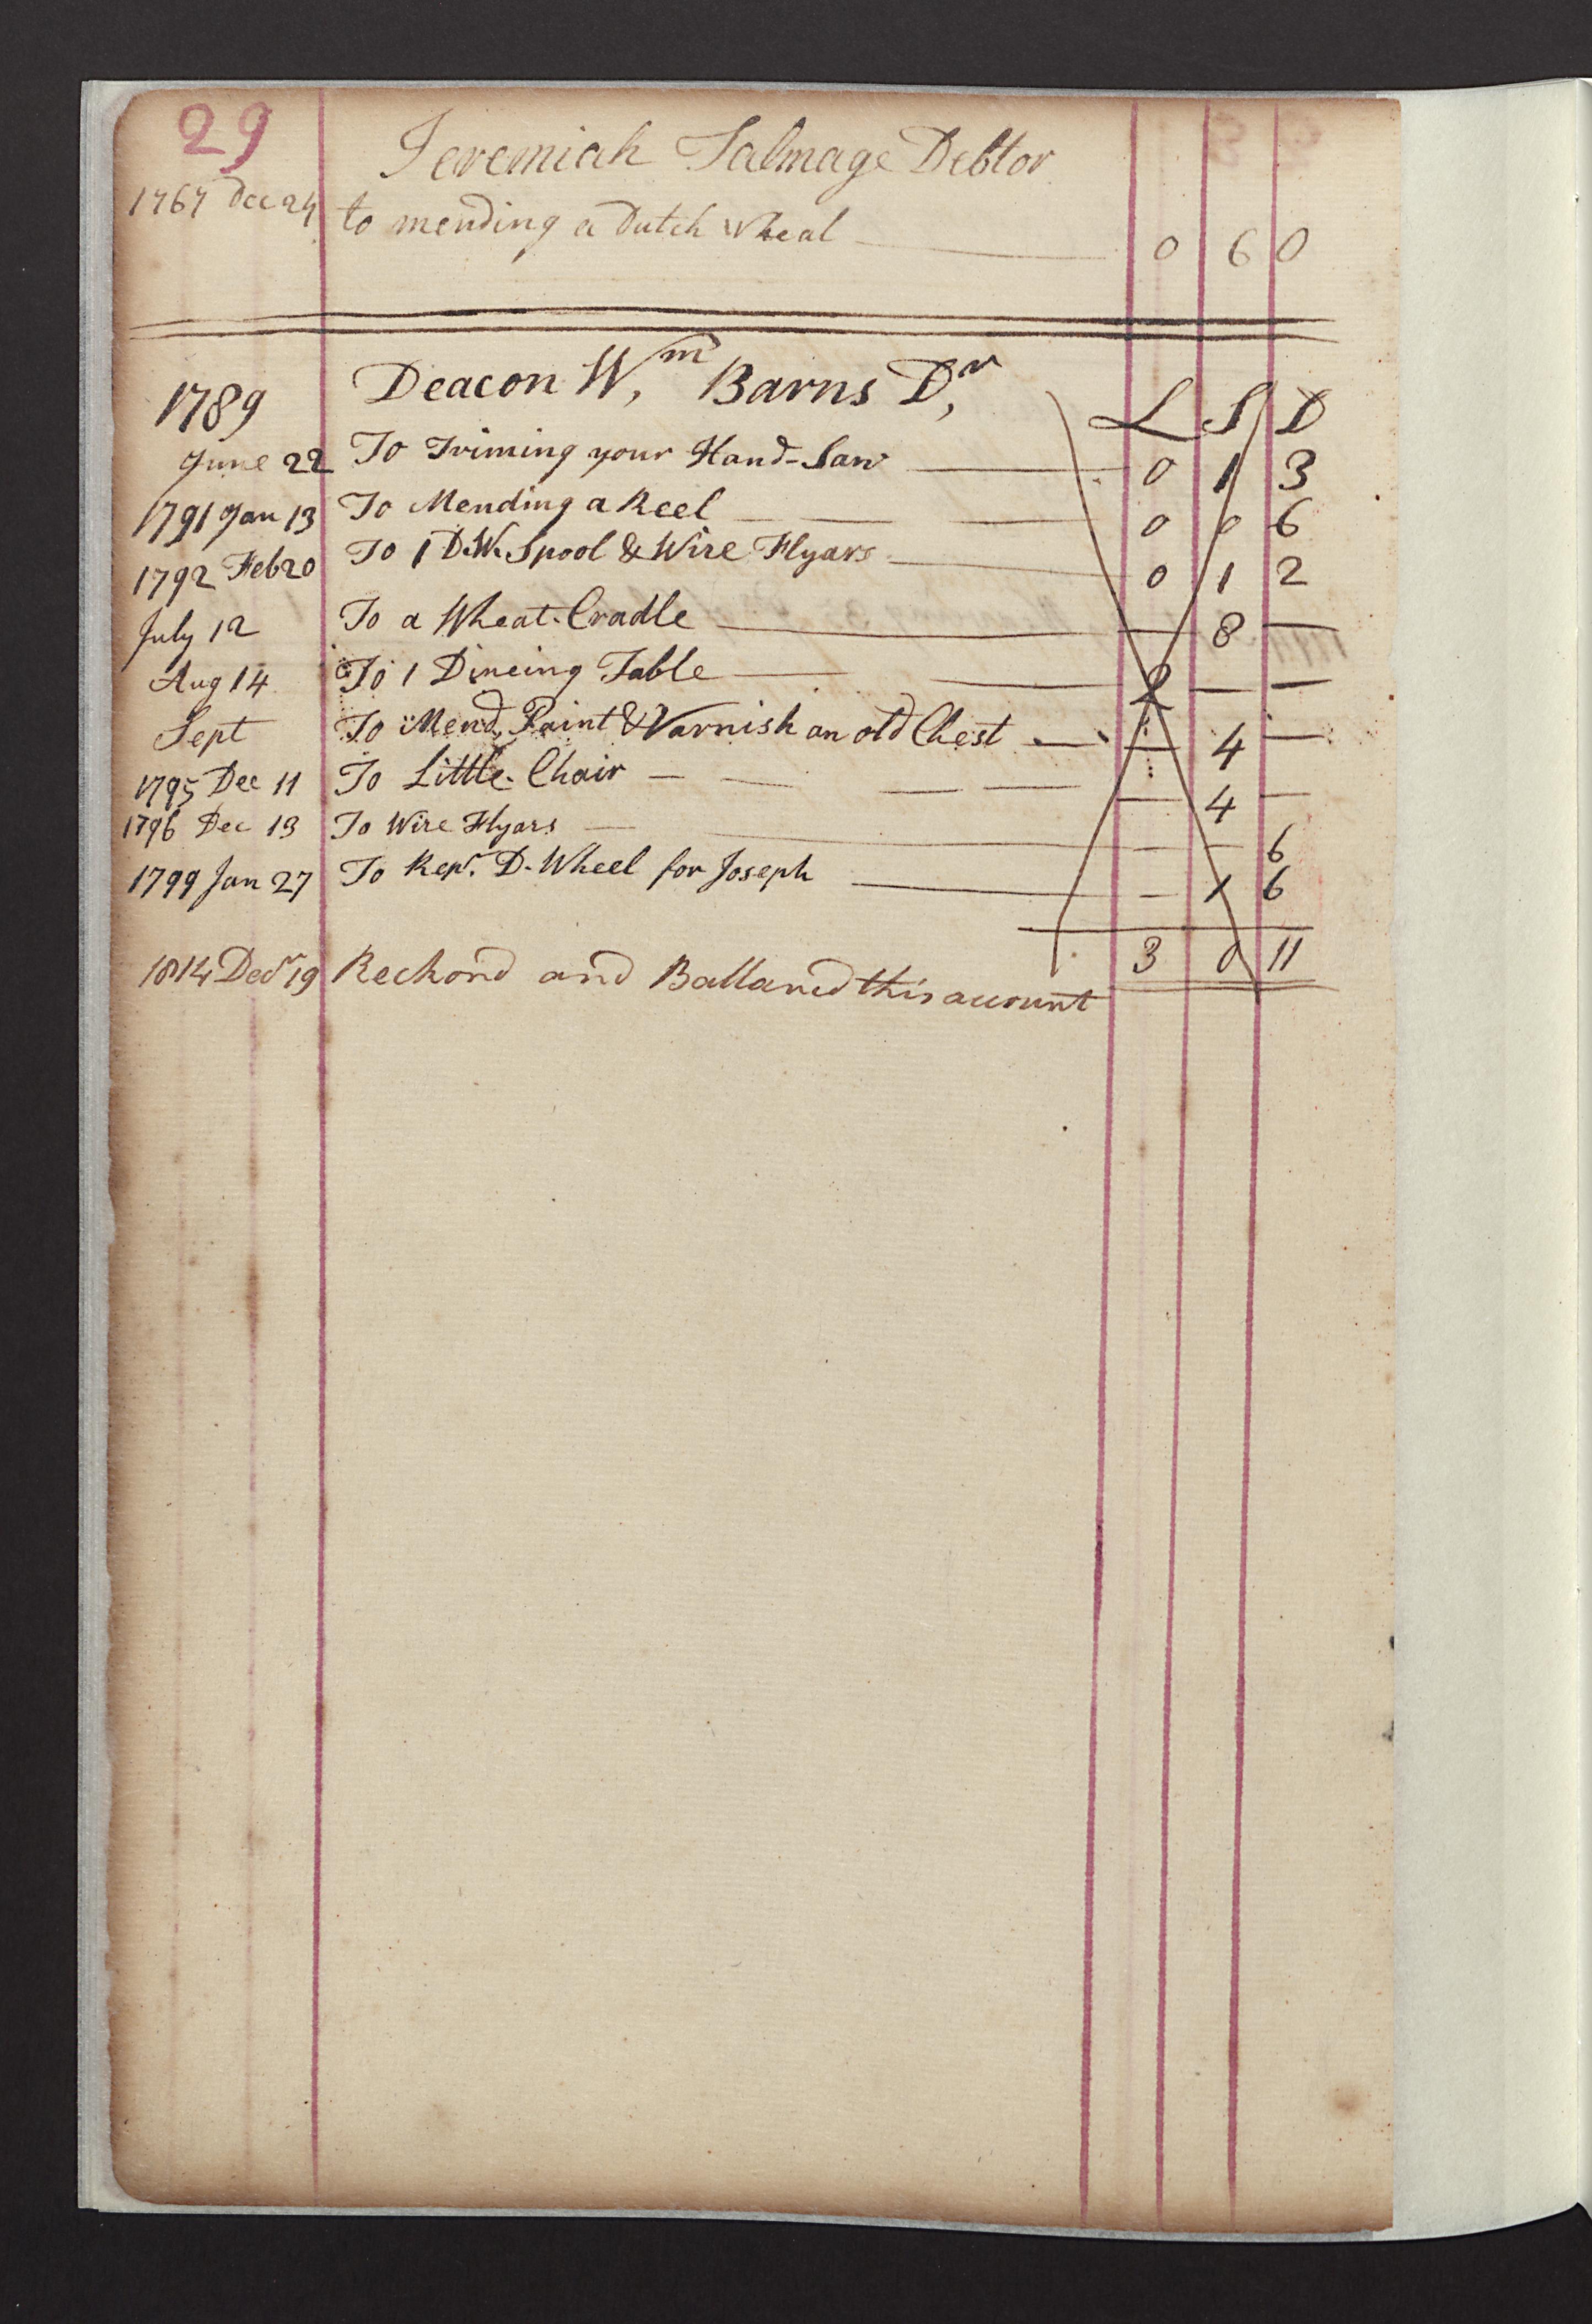 29
Jeremiah Talmage Debtor
1767 Dec 24 to mending a Dutch Wheal 0 6 0
1789 Deacon Wm, Barns Dr, L S D
June 22 To Triming your Hand-Saw 0 1 3
1791 Jan 13 To Mending a Reel 0 0 6
1792 Feb 20 To 1 D.W. Spool & Wire Flyars 0 1 2
July 12 To a Wheat-Cradle — 8 —
Aug 14 To 1 Dineing Table 2 — —
Sept To Mend, Paint & Varnish an old Chest — 4 —
1795 Dec 11 To Little-Chair — 4 —
1796 Dec 13 To Wire Flyars — — 6
1799 Jan 27 To Repr. D-Wheel for Joseph — 1 6
3 0 11
1814 Decr 19 Reckond and Ballancd this account